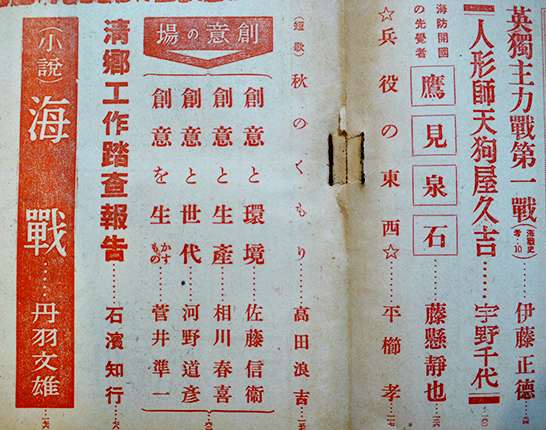 英獨主力戰第一戰(海戰史考・10)……伊藤正德
人形師天狗屋久吉……宇野千代
海防開國の先覺者 鷹見泉石……藤懸靜也
☆兵役の東西☆……平櫛孝
(短歌) 秋のくもり……高田浪吉
創意の場
創意と環境……佐藤信衛
創意と生產……相川春喜
創意と世代……河野道彦
創意を生かすもの……菅井準一
淸鄉工作踏查報告……石濱知行
(小說) 海戰……丹羽文雄